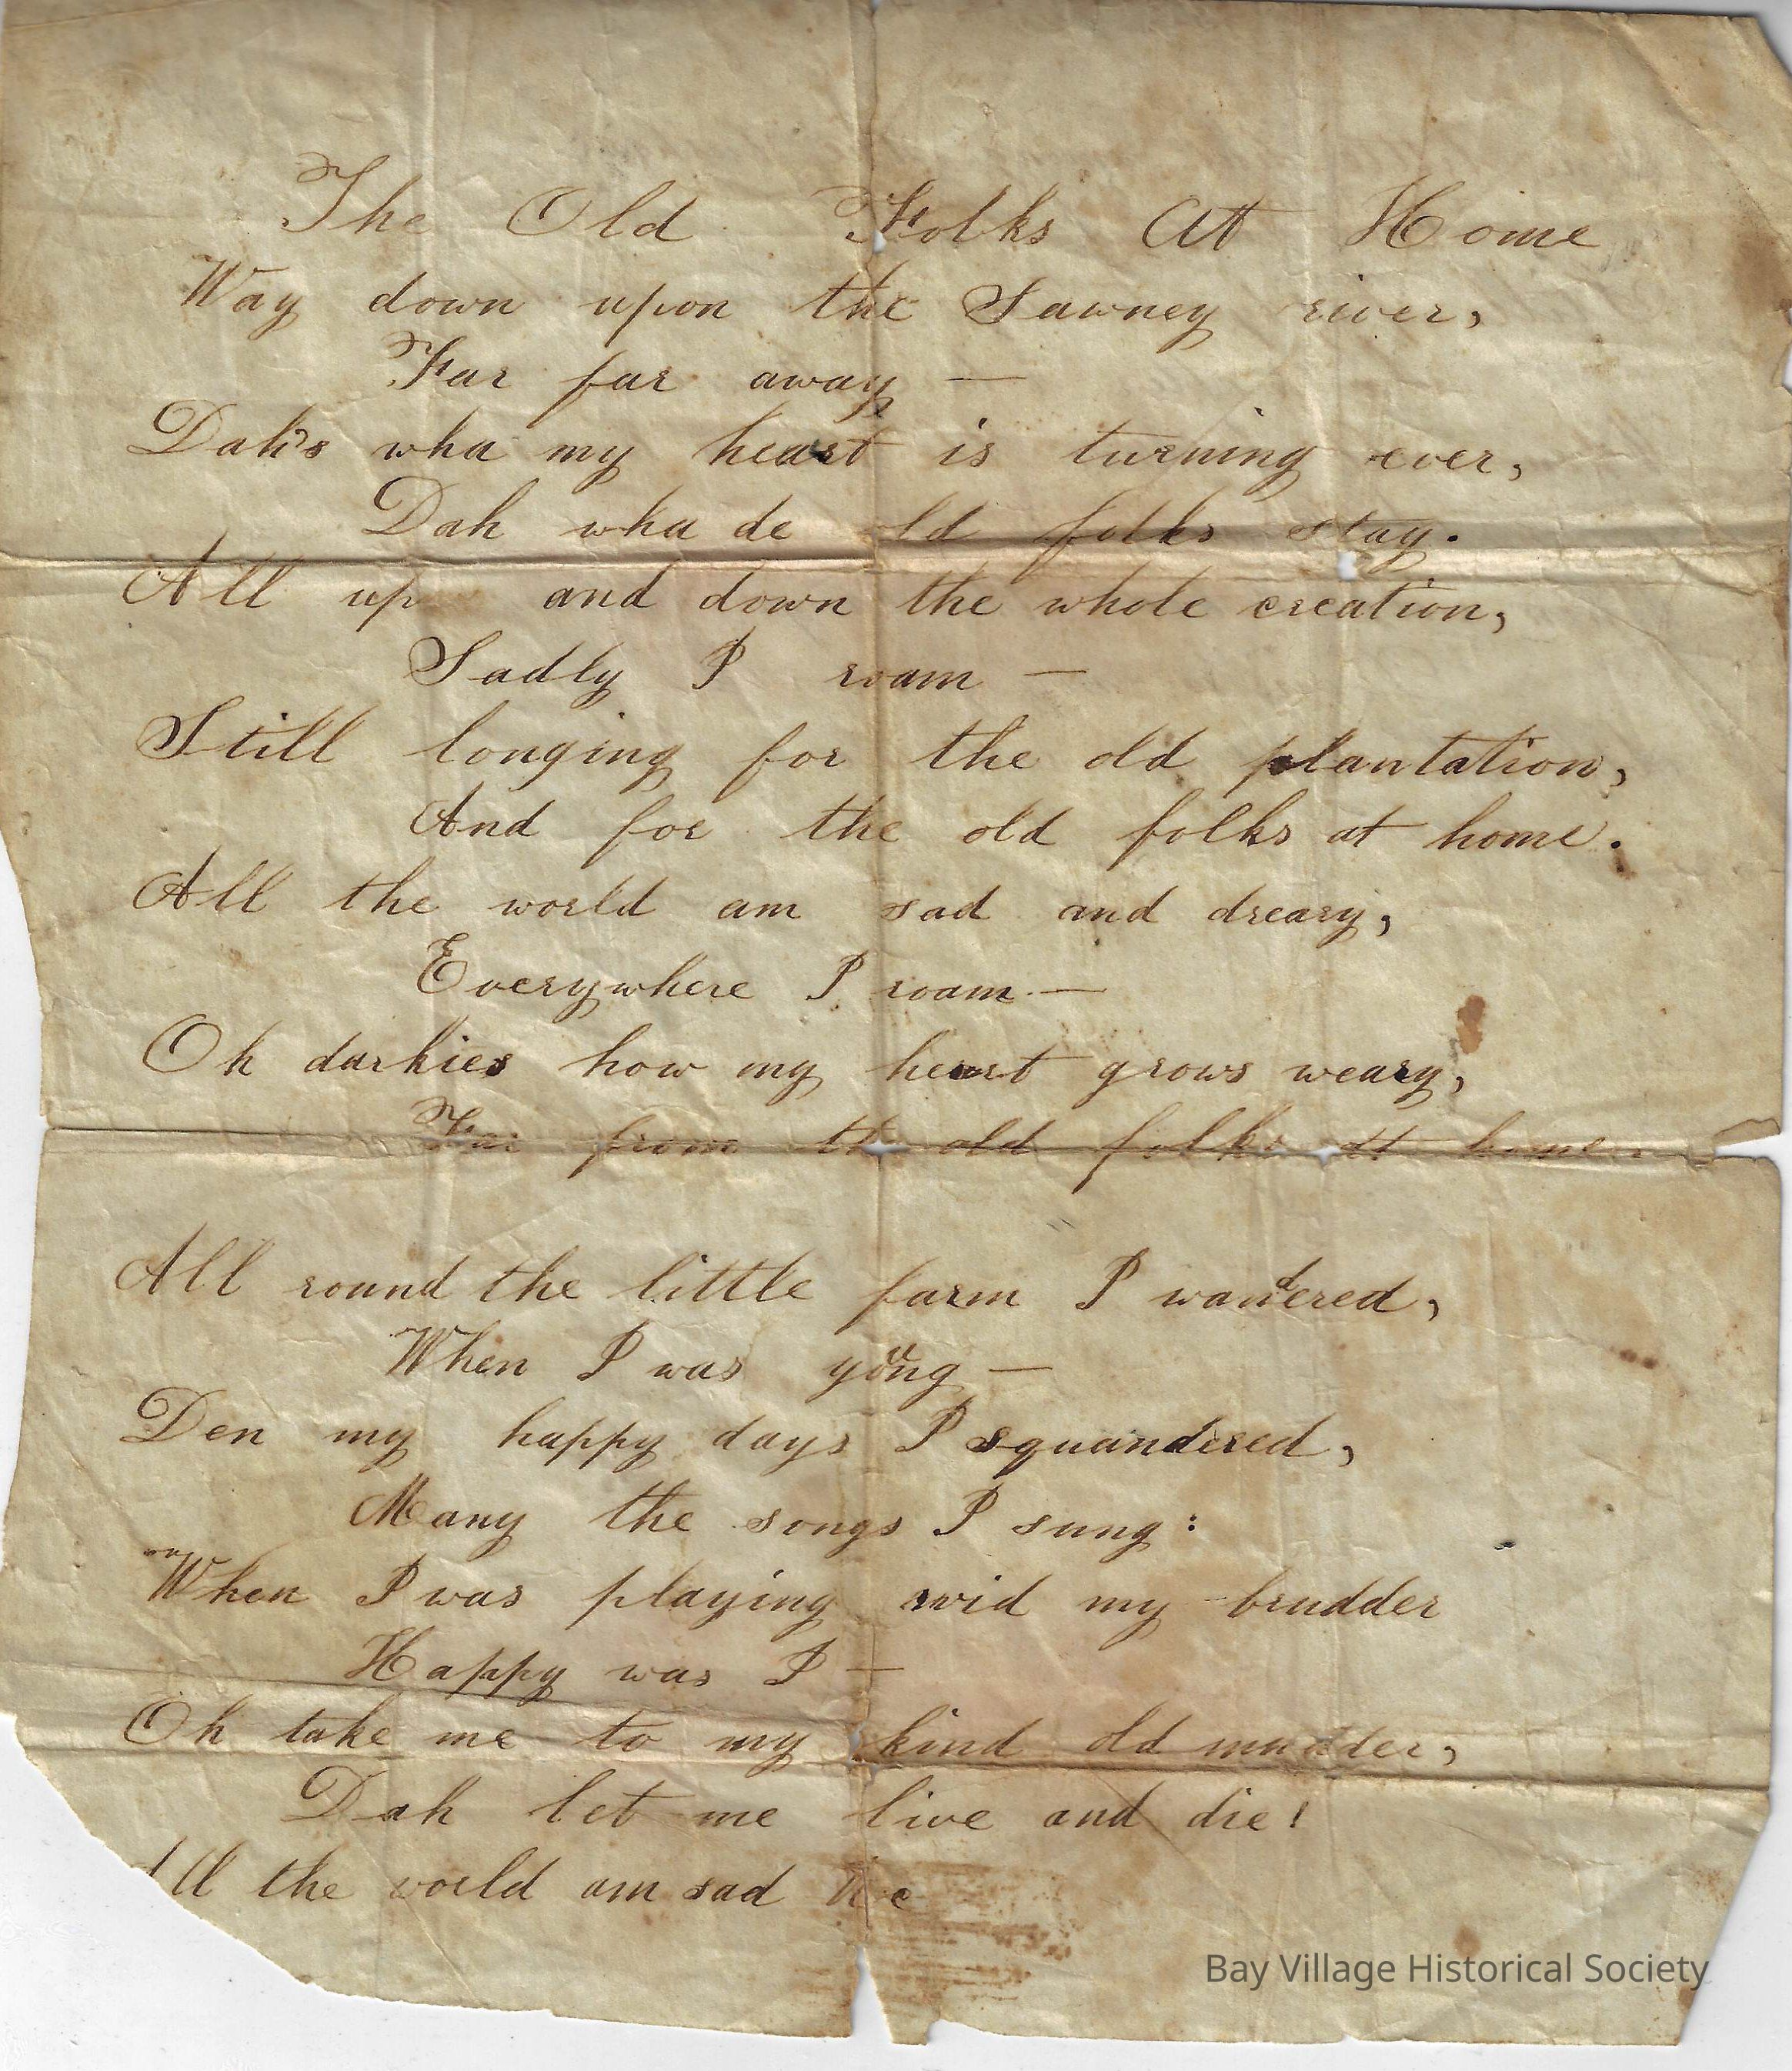 The Old Folks At Home
Way down upon the Sawney river,
Far far away —
Dah's wha my heart is turning ever,
Dah wha de old folks stay.
All up and down the whole creation,
Sadly I roam —
Still longing for the old plantation,
And for the old folks at home.
All the world am sad and dreary,
Everywhere I roam —
Oh darkies how my heart grows weary,
Far from the old folks at home.
All round the little farm I wandered,
When I was young —
Den my happy days I squandered,
Many the songs I sung:
When I was playing wid my brudder
Happy was I —
Oh take me to my kind old mudder,
Dah let me live and die!
All the world am sad
Bay Village Historical Society